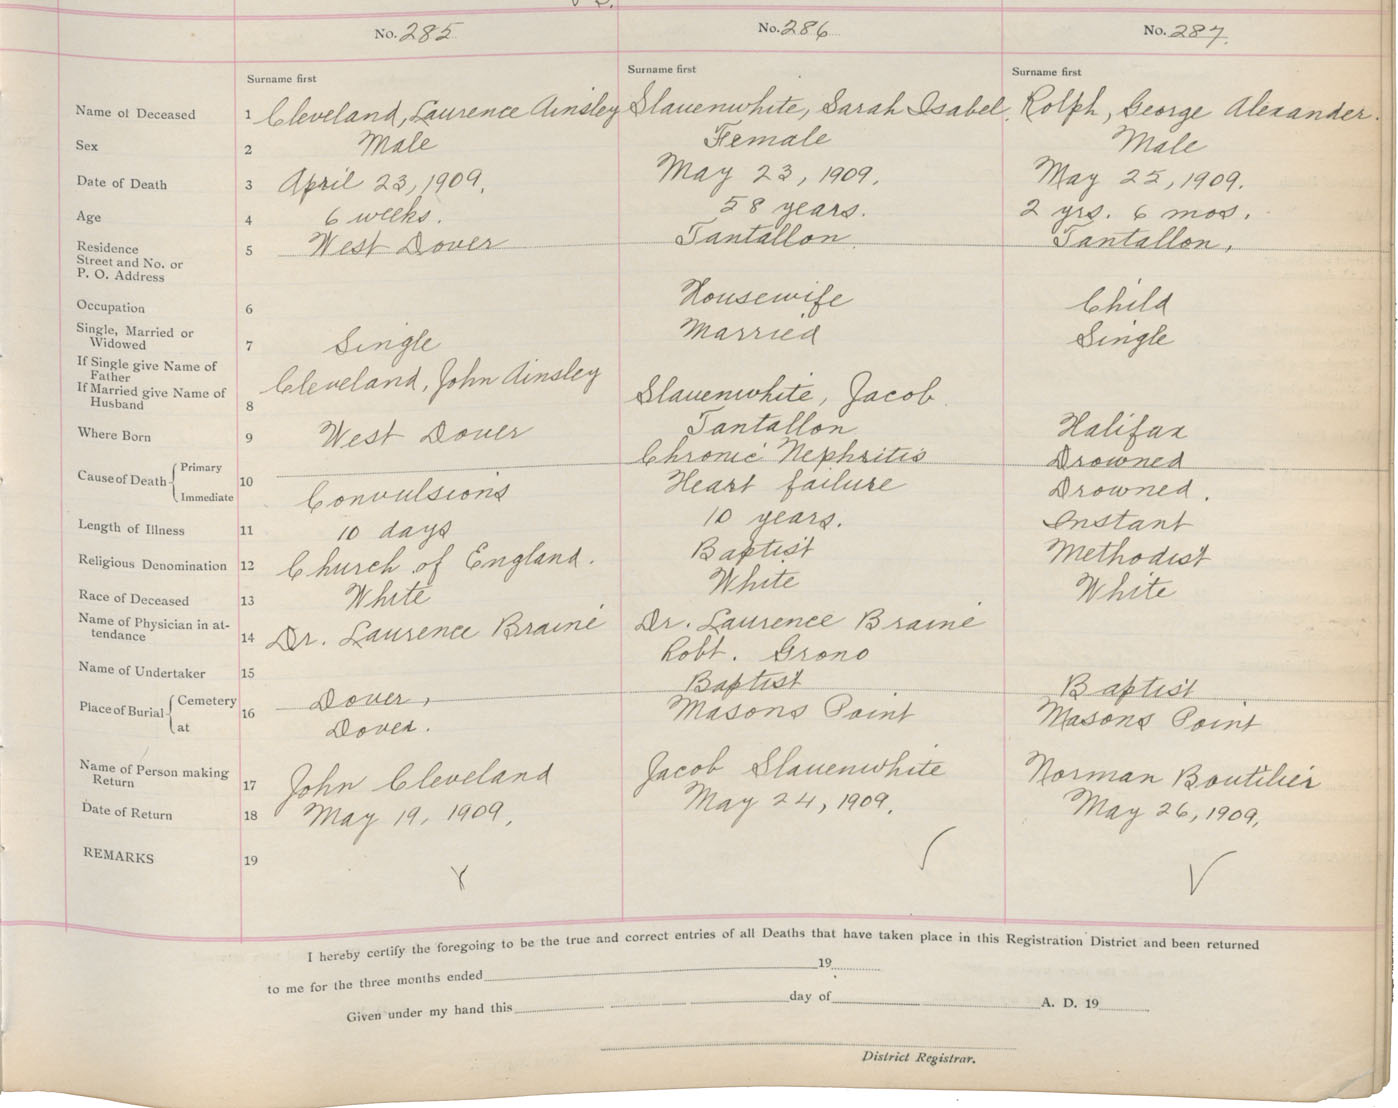 No. 285 No. 286 No. 287.
Surname first Surname first Surname first
Name of Deceased 1 Cleveland, Laurence Ainsley Slauenwhite, Sarah Isabel. Rolph, George Alexander.
Sex 2 Male Female Male
Date of Death 3 April 23, 1909. May 23, 1909. May 25, 1909.
Age 4 6 weeks. 58 years. 2 yrs. 6 mos.
Residence
Street and No. or
P. O. Address 5 West Dover Tantallon. Tantallon.
Occupation 6 Housewife Child
Single, Married or
Widowed 7 Single Married Single
If Single give Name of
Father
If Married give Name of
Husband 8 Cleveland, John Ainsley Slauenwhite, Jacob
Where Born 9 West Dover Tantallon Halifax
Cause of Death 10 Primary Chronic Nephritis Drowned
Immediate Convulsions Heart failure Drowned.
Length of Illness 11 10 days 10 years. Instant
Religious Denomination 12 Church of England. Baptist Methodist
Race of Deceased 13 White White White
Name of Physician in at-
tendance 14 Dr. Laurence Braine Dr. Laurence Braine
Name of Undertaker 15 Robt. Grono
Place of Burial 16 Cemetery Dover, Baptist Baptist
at Dover. Masons Point Masons Point
Name of Person making
Return 17 John Cleveland Jacob Slauenwhite Norman Boutilier
Date of Return 18 May 19, 1909. May 24, 1909. May 26, 1909.
REMARKS 19
I hereby certify the foregoing to be the true and correct entries of all Deaths that have taken place in this Registration District and been returned
to me for the three months ended 19
Given under my hand this day of A. D. 19
District Registrar.